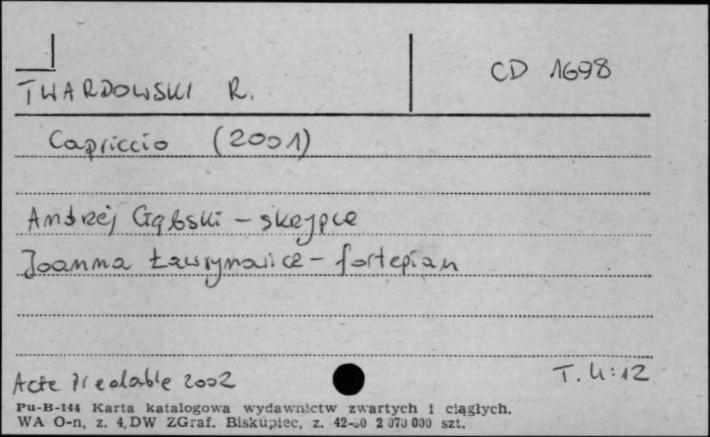 CD 1698
TWARDOWSKI R.
Capriccio (2001)
Andrzej Gębski - skrzypce
Joanna Ławrynowicz - fortepian
Acte Prealable 2002
T. 4:12
Pu-B-144 Karta katalogowa wydawnictw zwartych i ciągłych.
WA O-n, z. 4, DW ZGraf. Biskupiec, z. 42-50 2 070 000 szt.